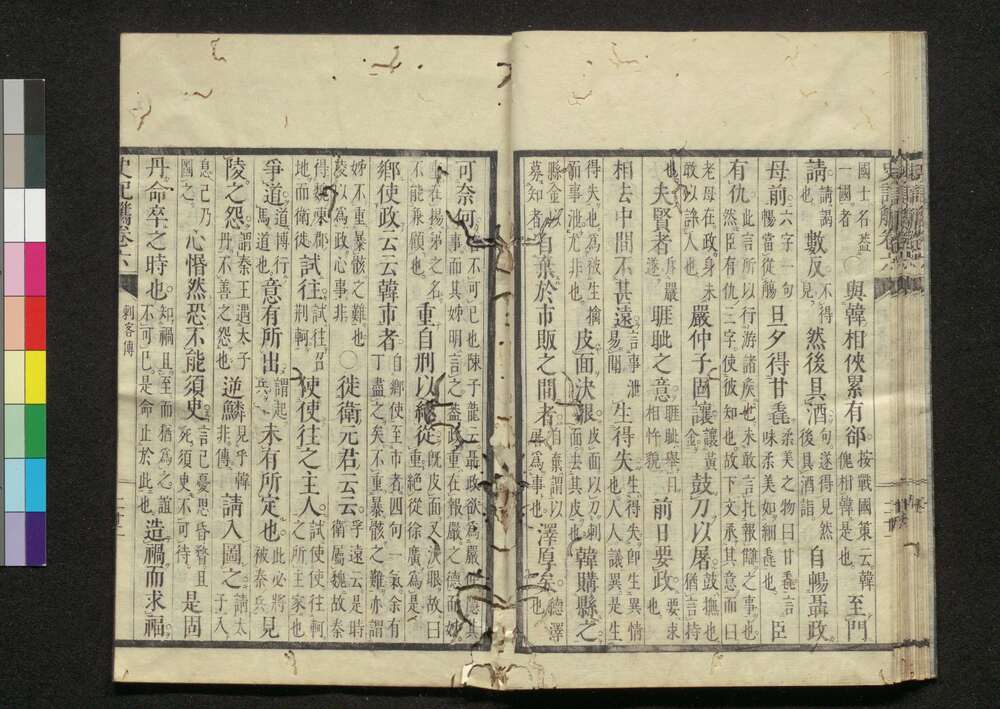 國士名蓋一國者○與韓相俠累有郤按戰國策云韓傀相韓是也至門
請請謁也數反不得見然後具酒句遂得見然後具酒詣自暢聶政
母前六字一句暢當從觴旦夕得甘毳柔美之物曰甘毳言味柔美如細毳也臣
有仇此言所以行游諸矦也未敢言托報讎之事也然臣有仇三字使彼知也故下文承其意而曰
老母在政身未敢以許人也嚴仲子固讓讓黃金鼓刀以屠鼓撫也猶言持
也夫賢者斥嚴遂睚眦之意睚眦舉目相忤貌前日要政要求也
相去中間不甚遠言事泄易聞生得失生得失卽生異情也人人議異是生
得失也爲被生擒而事泄尤非也皮面決眼皮面以刀刺面去其皮也韓購縣之
縣金以募知者自棄於市販之間者自棄謂以屠爲事也澤厚矣德澤也
可奈何言不可已也陳子龍云聶政欲爲嚴仲子隱其事而其姊明言之蓋政重在報嚴之德而姊
重在揚弟之名不能兼顧也重自刑以絕從既皮面又決眼故曰重絕從徐廣爲是
鄉使政云云韓市者自鄉使至市者四句一氣余有丁盡之矣不重暴骸之難亦謂
姊不重暴骸之難也夌以爲政心事非○徙衛元君云云乎遠云是時衛屬魏故秦
得魏東郡地而衛徙試往試往召荊軻使使往之主人試使使往軻之所主家也
爭道道博行馬道也意有所出謂起兵未有所定也此必將被秦兵見
陵之怨謂秦王遇太子丹不善之怨也逆鱗見乎韓非傳請入圖之請太子入
息己乃圖之心惛然恐不能須臾言已憂思昏瞀且死須臾不可待是固
丹命卒之時也知禍且至而猶爲之誼不可已是命止於此也造禍而求福
史記觿卷六 刺客傳